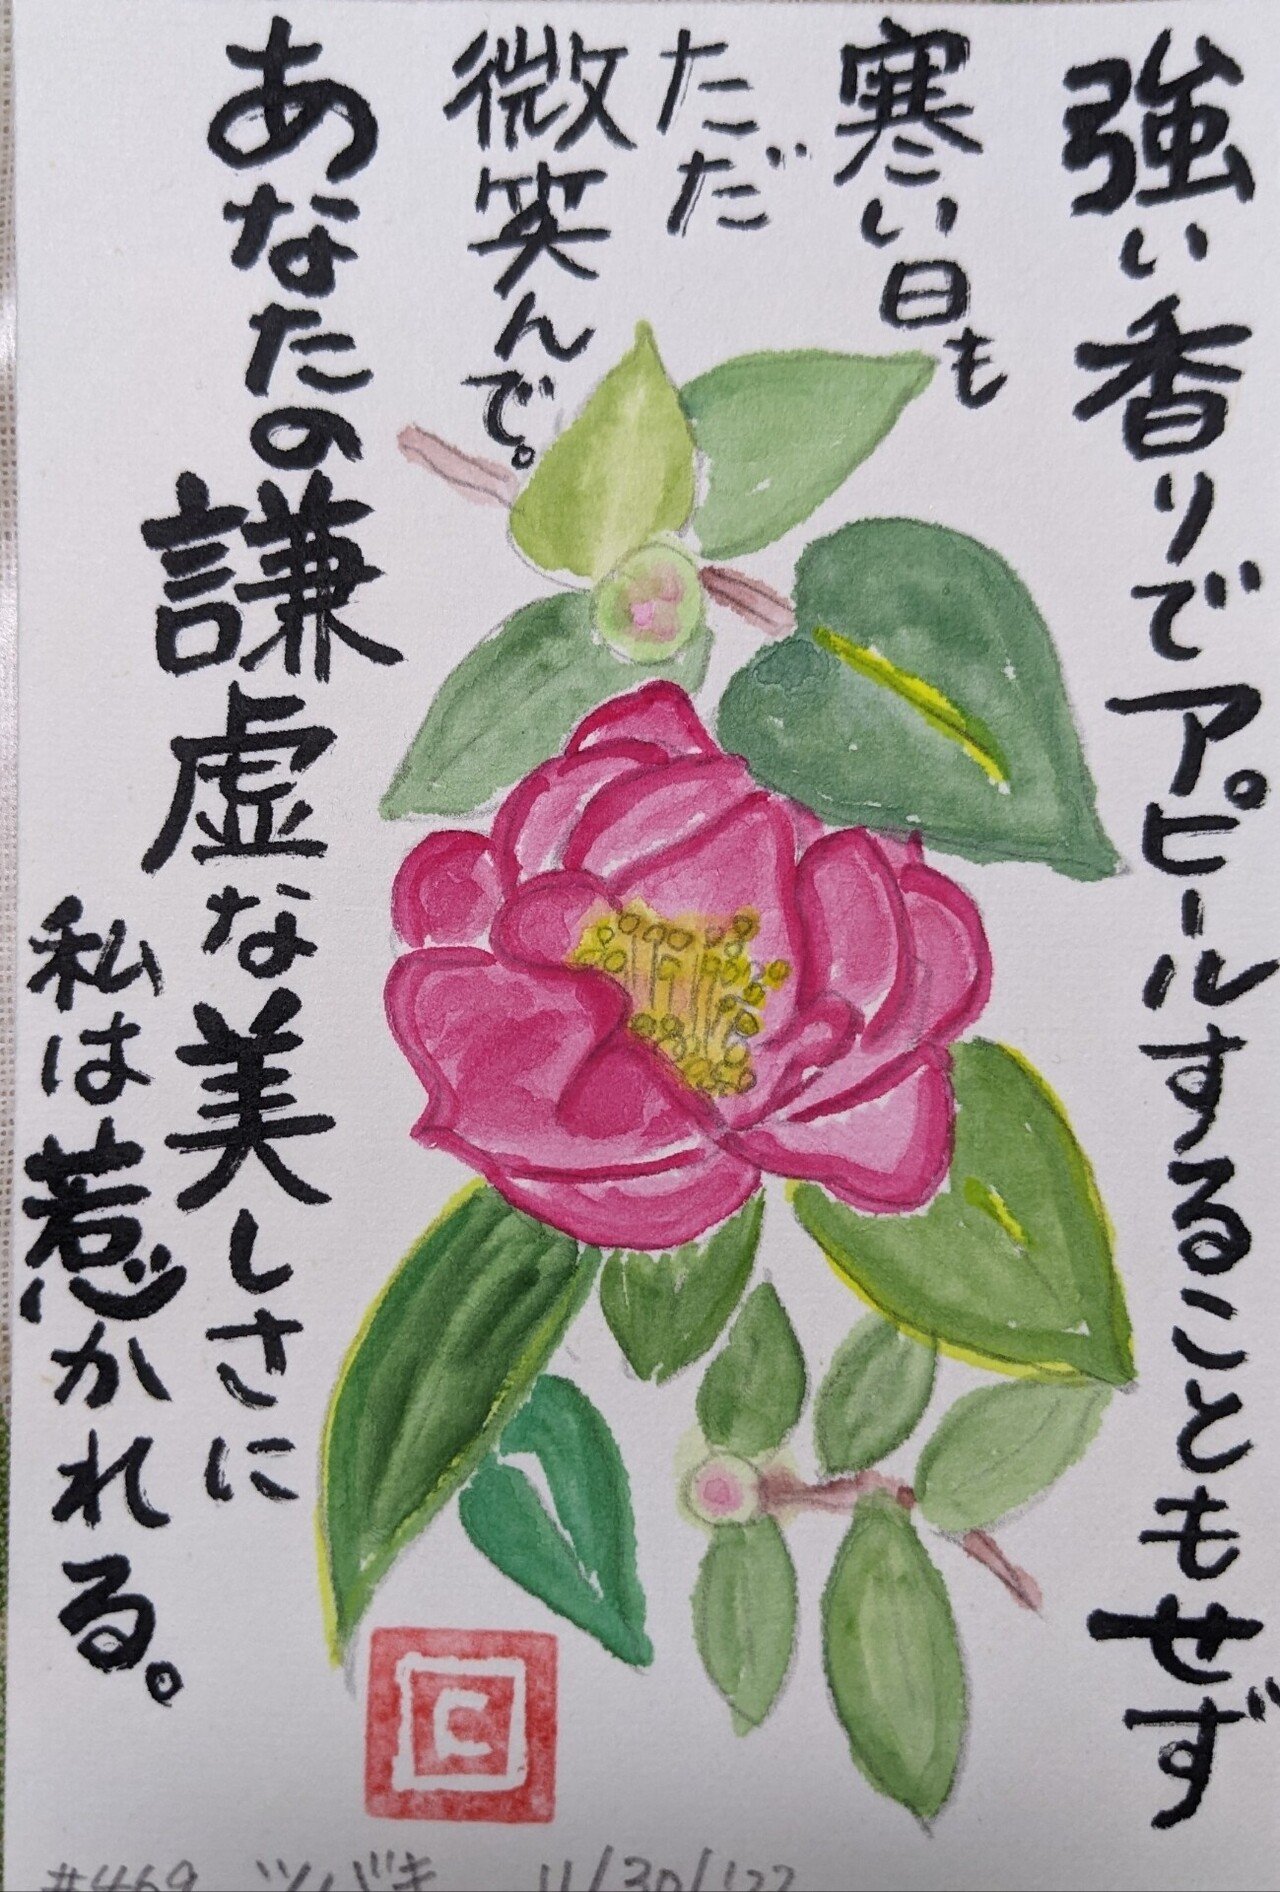 強い香りでアピールすることもせず
寒い日も
ただ
微笑んで。
あなたの謙虚な美しさに
私は惹かれる。
C
#469 ツバキ 11/30/'22